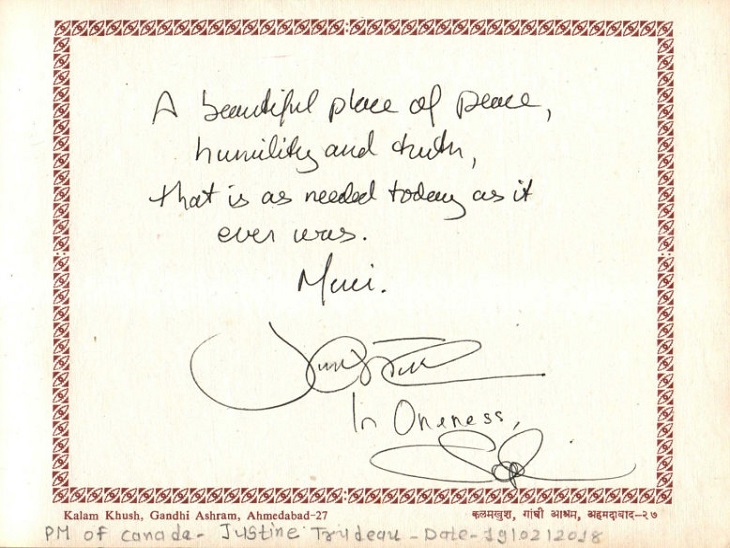 A beautiful place of peace,
humility and truth,
that is as needed today as it
ever was.
Merci.
In Oneness,
Kalam Khush, Gandhi Ashram, Ahmedabad-27
कलमखुश, गांधी आश्रम, अहमदाबाद-२७
PM of Canada- Justine Trudeau - Date-19/02/2018